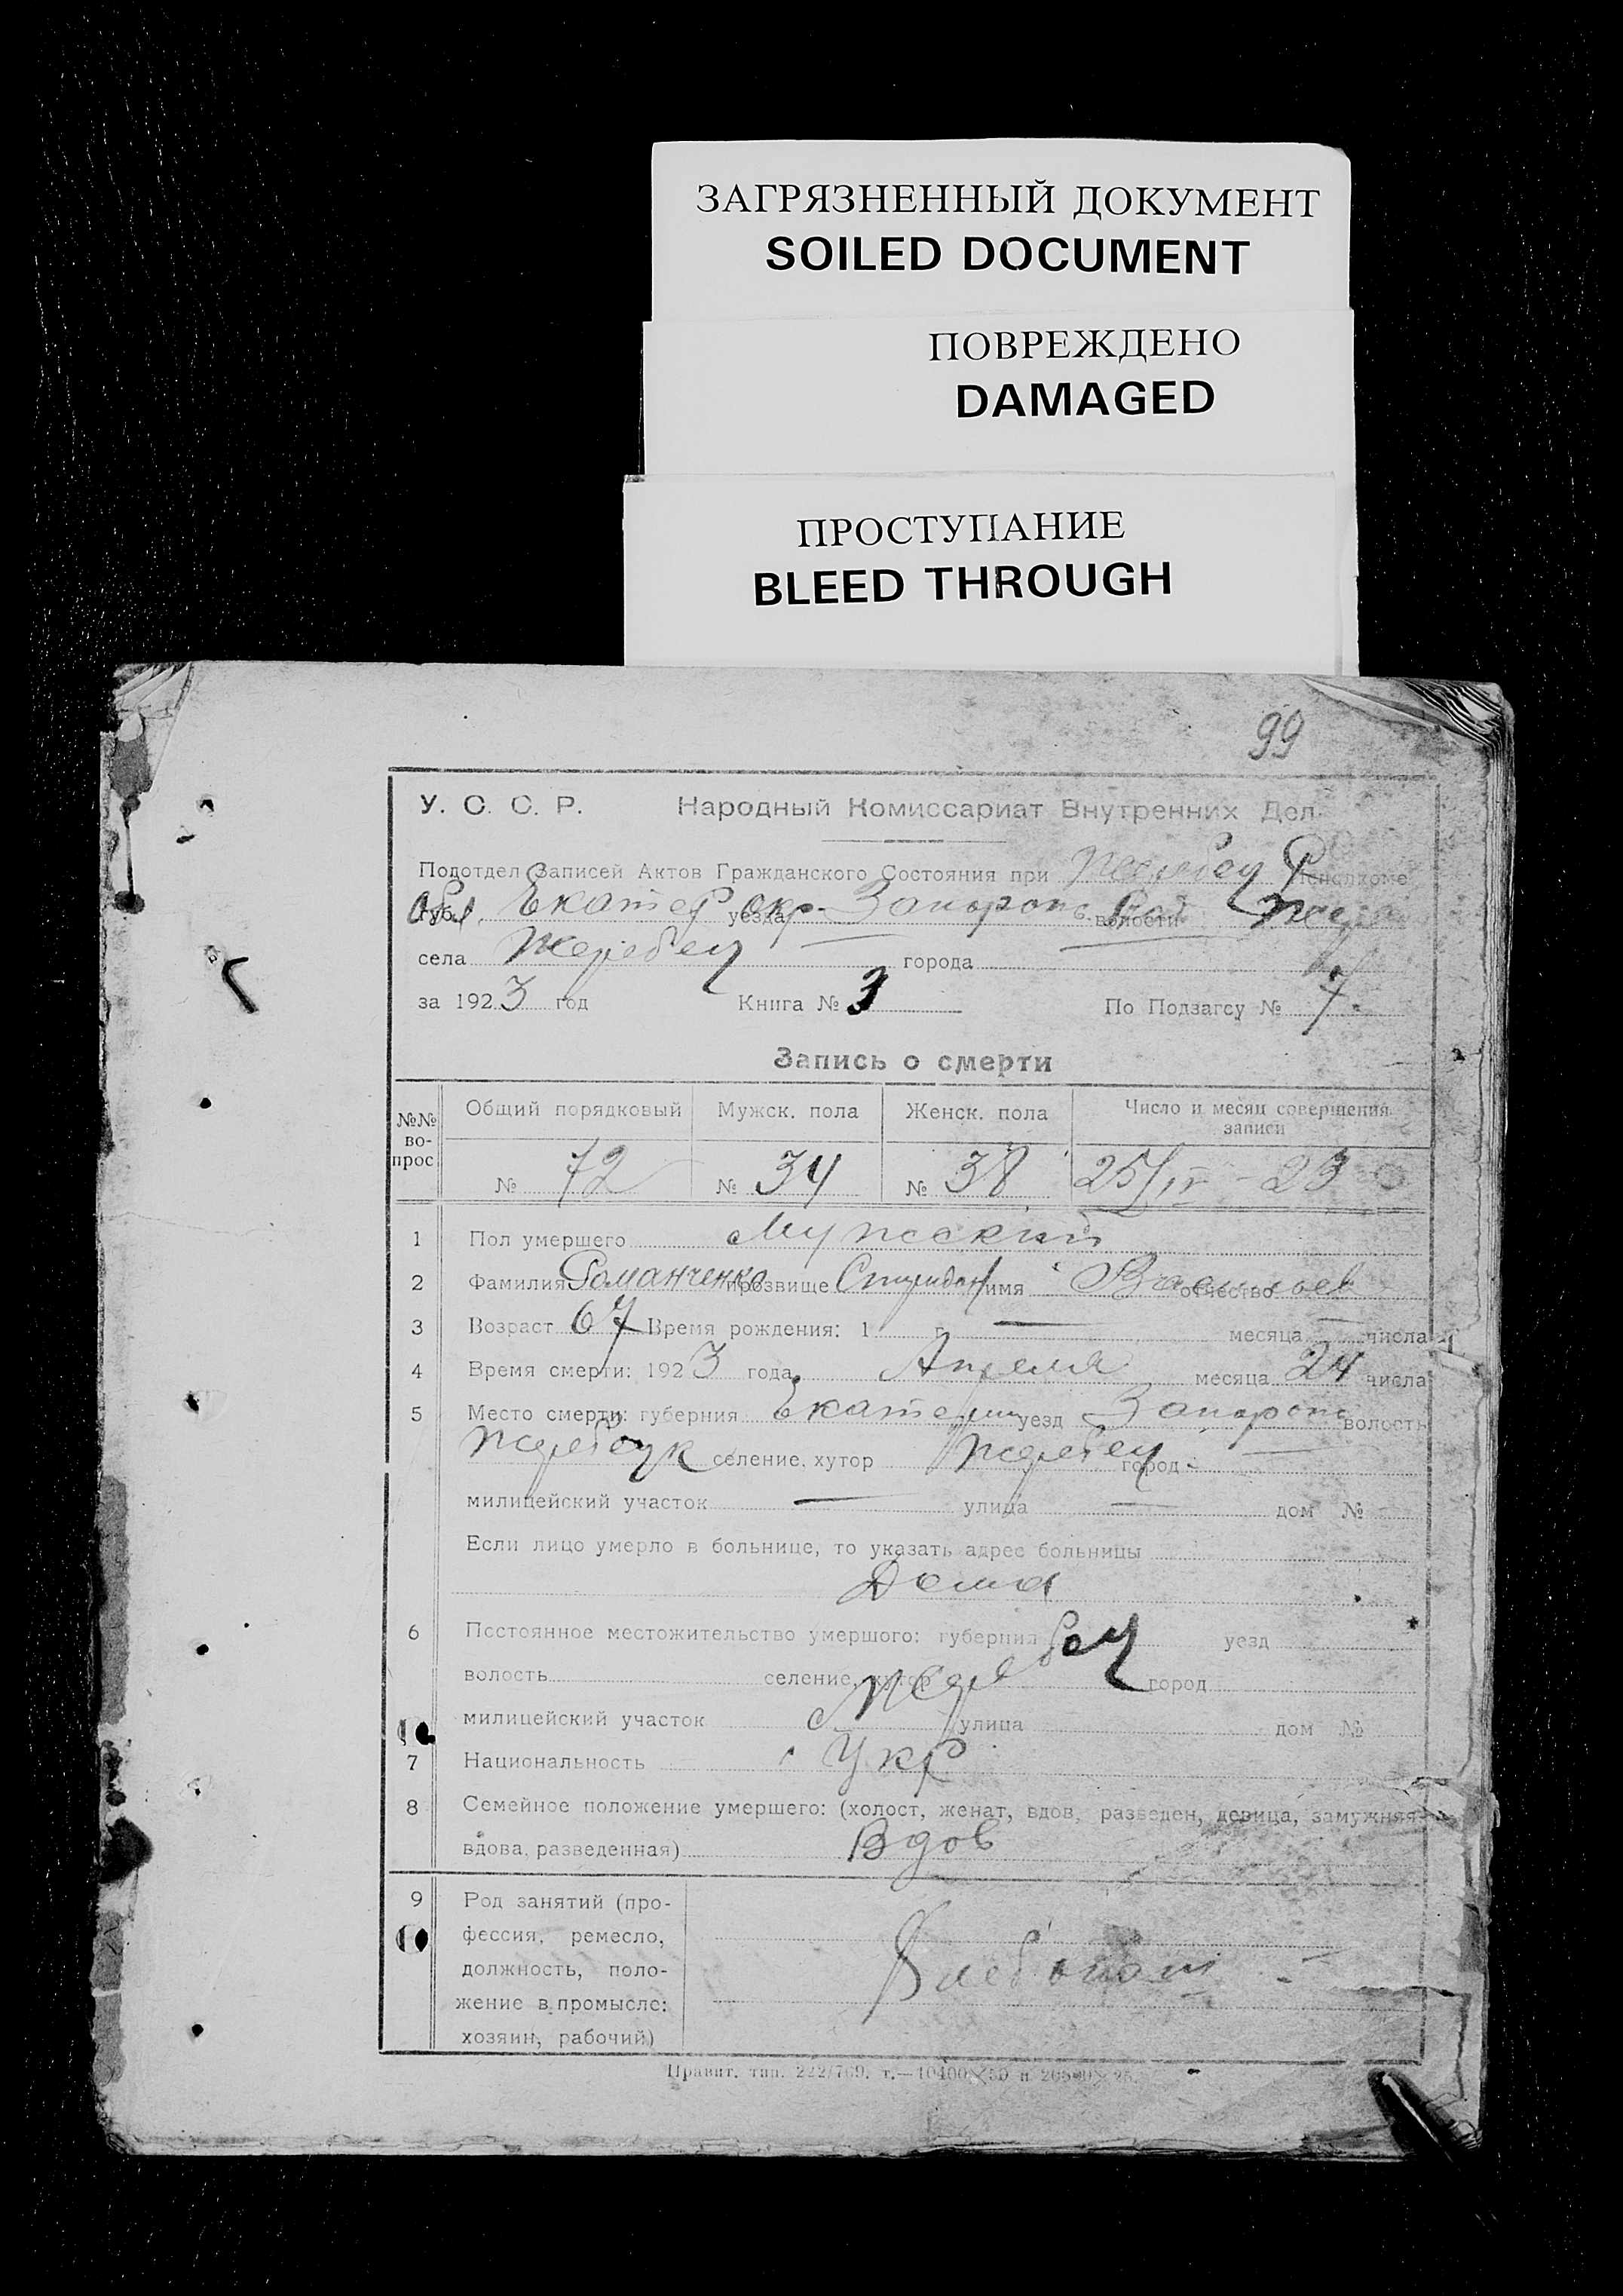 ЗАГРЯЗНЕННЫЙ ДОКУМЕНТ
SOILED DOCUMENT
ПОВРЕЖДЕНО
DAMAGED
ПРОСТУПАНИЕ
BLEED THROUGH
99
У. С. С. Р. Народный Комиссариат Внутренних Дел.
Подотдел Записей Актов Гражданского Состояния при Жеребец Р Исполкоме
губ. Екатер окр. уезда Запорож волости
села Жеребец города
за 1923 год Книга № 3 По Подзагсу № 7
Запись о смерти
№№ вопрос Общий порядковый Мужск. пола Женск. пола Число и месяц совершения записи
№ 72 № 34 № 38 25/IV - 23
1 Пол умершего Мужский
2 Фамилия Романченко прозвище имя отчество
3 Возраст 67 Время рождения: 1 г. — месяца — числа
4 Время смерти: 1923 года Апреля месяца 24 числа
5 Место смерти: губерния Екатерин уезд Запорож волость
селение, хутор Жеребец город —
милицейский участок — улица — дом №
Если лицо умерло в больнице, то указать адрес больницы
Дома
6 Постоянное местожительство умершого: губерния уезд
волость селение, хутор Жеребец город
милицейский участок улица дом №
7 Национальность Укр
8 Семейное положение умершего: (холост, женат, вдов, разведен, девица, замужняя
вдова, разведенная) Вдов
9 Род занятий (про-
фессия, ремесло,
должность, поло-
жение в промысле:
хозяин, рабочий)
Хлебопаш